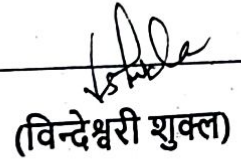 (विन्देश्वरी शुक्ल)